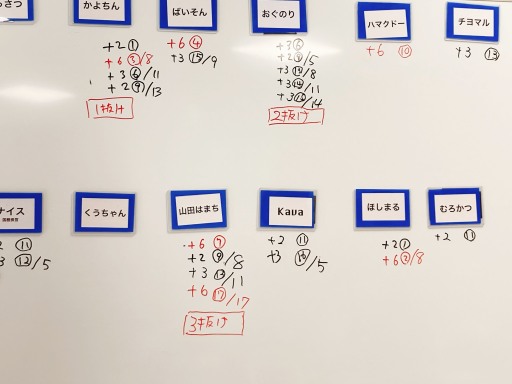 さつ
かよちん
+2①
+6③/8
+3⑥/11
+2⑨/13
1抜け
ぱいそん
+6④
+3⑮/9
おぐのり
+3⑥
/5
/8
+3⑭/11
/14
2抜け
ハマクドー
+6⑩
チヨマル
+3⑬
ナイス
⑪
3⑫/5
くうちゃん
山田はまち
+6
+2/8
+3/11
+6⑰/17
3抜け
Kava
+2⑪
+3/5
ほしまる
+2①
+6/8
むろかつ
+2⑪